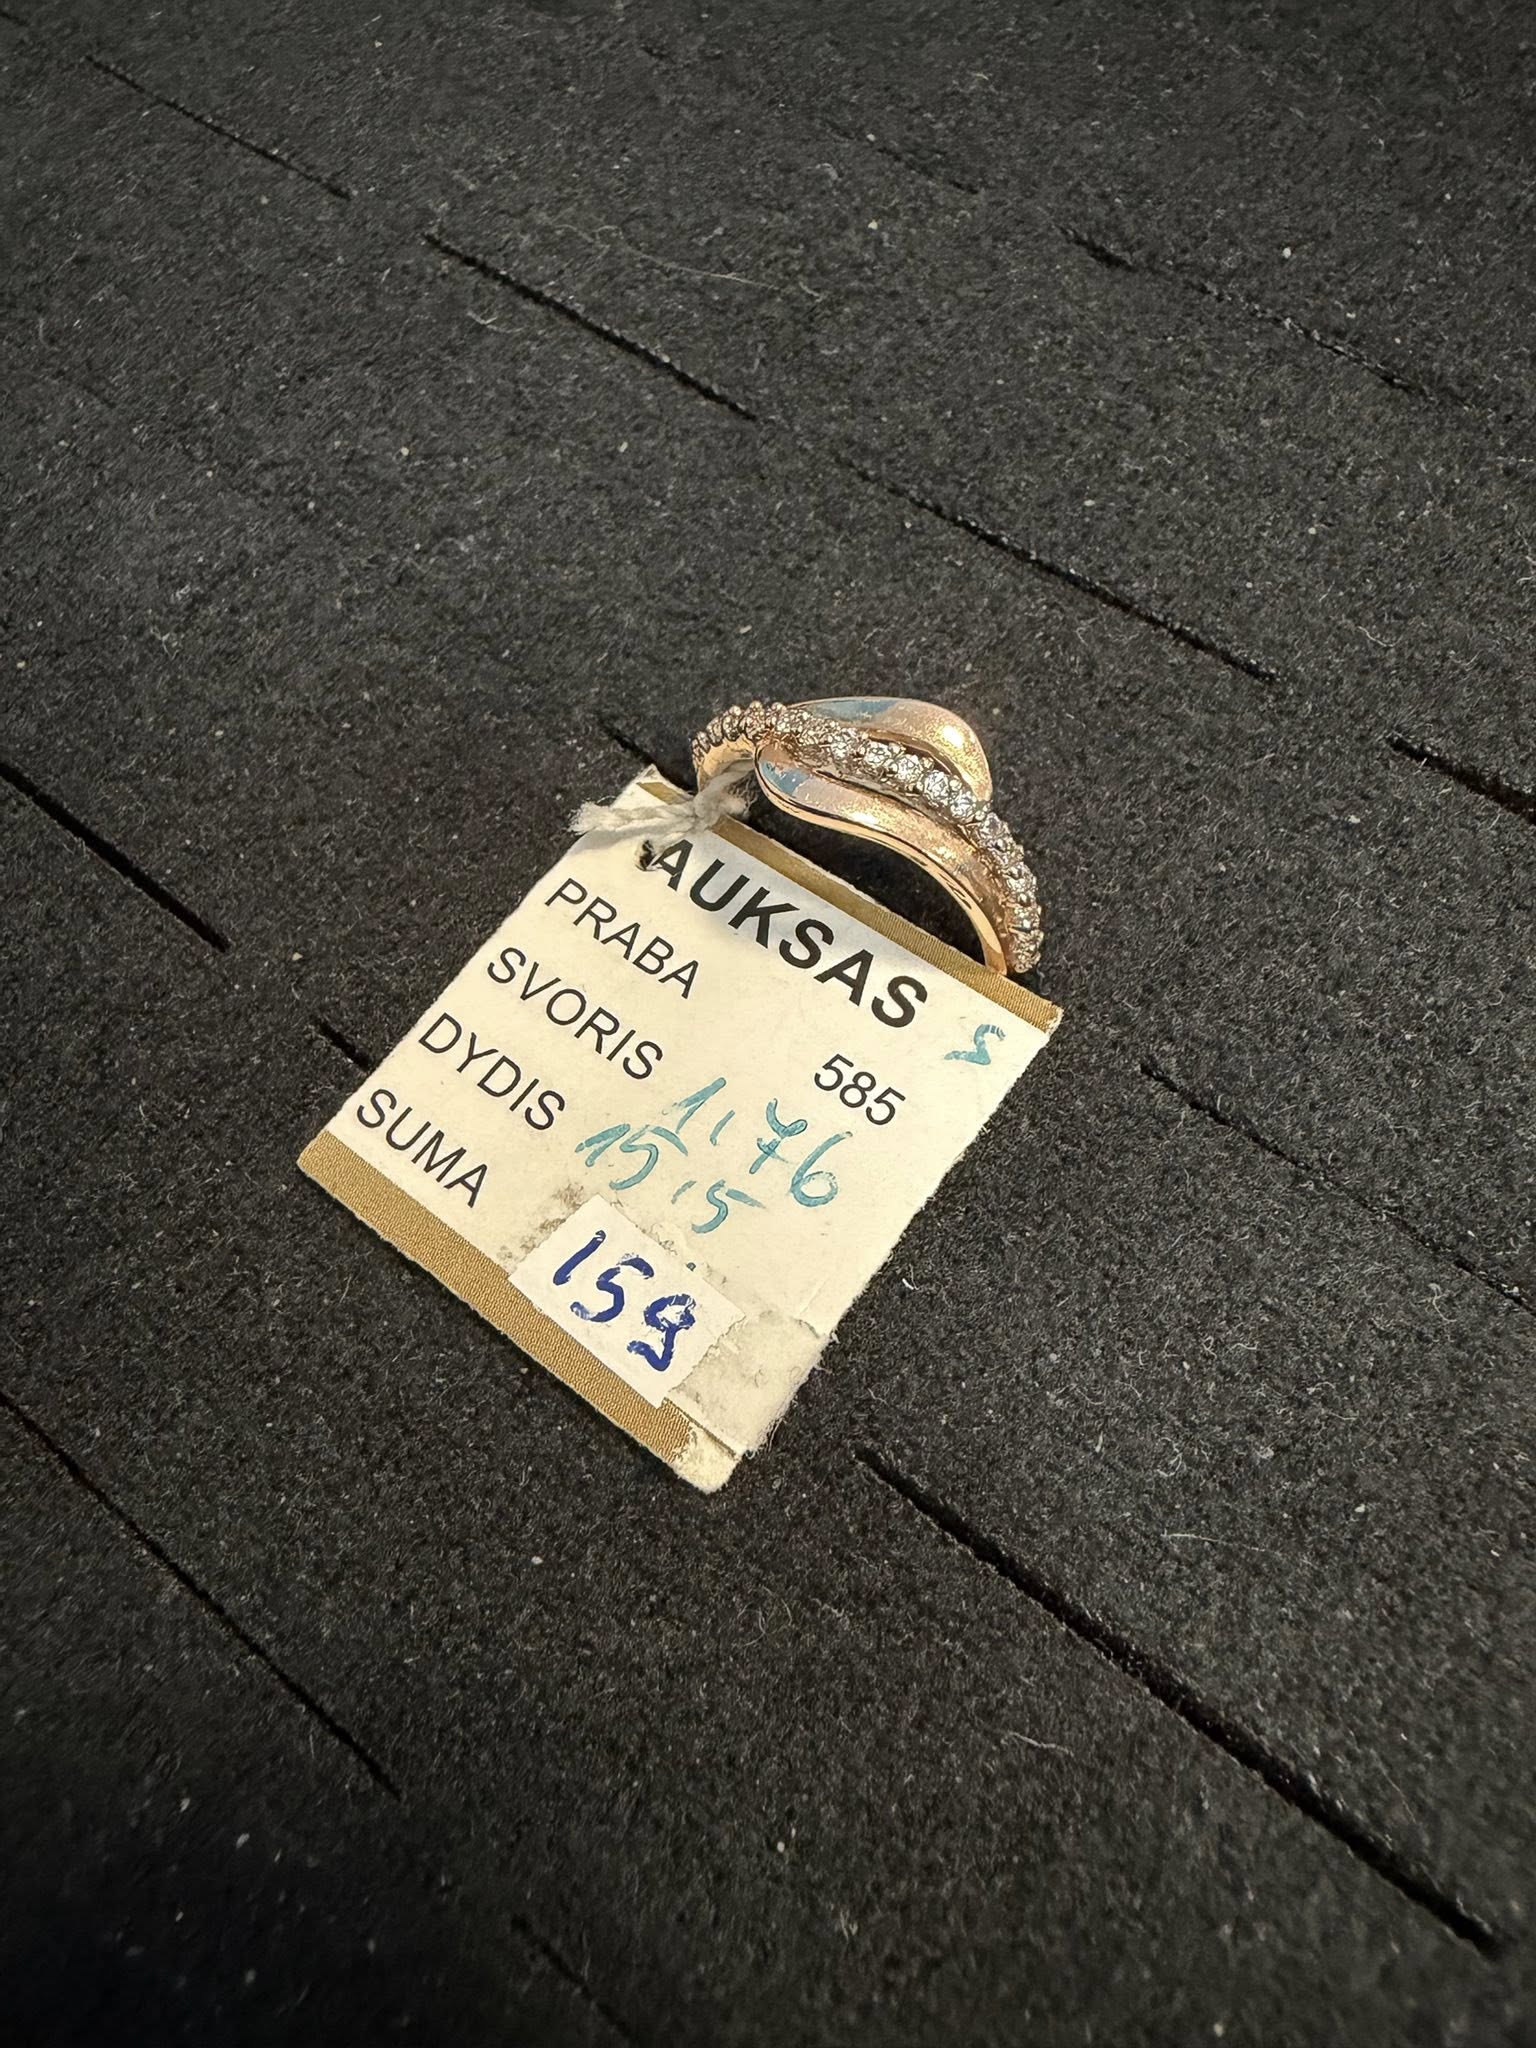 AUKSAS
PRABA 585
SVORIS 1,76
DYDIS 15,5
SUMA 159